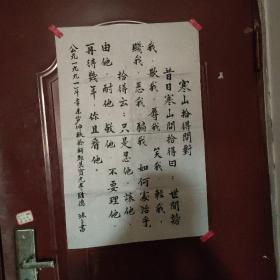 寒山拾得問對
昔日寒山問拾得曰：世間謗
我、欺我、辱我、笑我、輕我、
賤我、惡我、騙我、如何處治乎、
拾得云：只是忍他、讓他、
由他、耐他、敬他、不要理他、
再待幾年、你且看他、
公元一九九一年